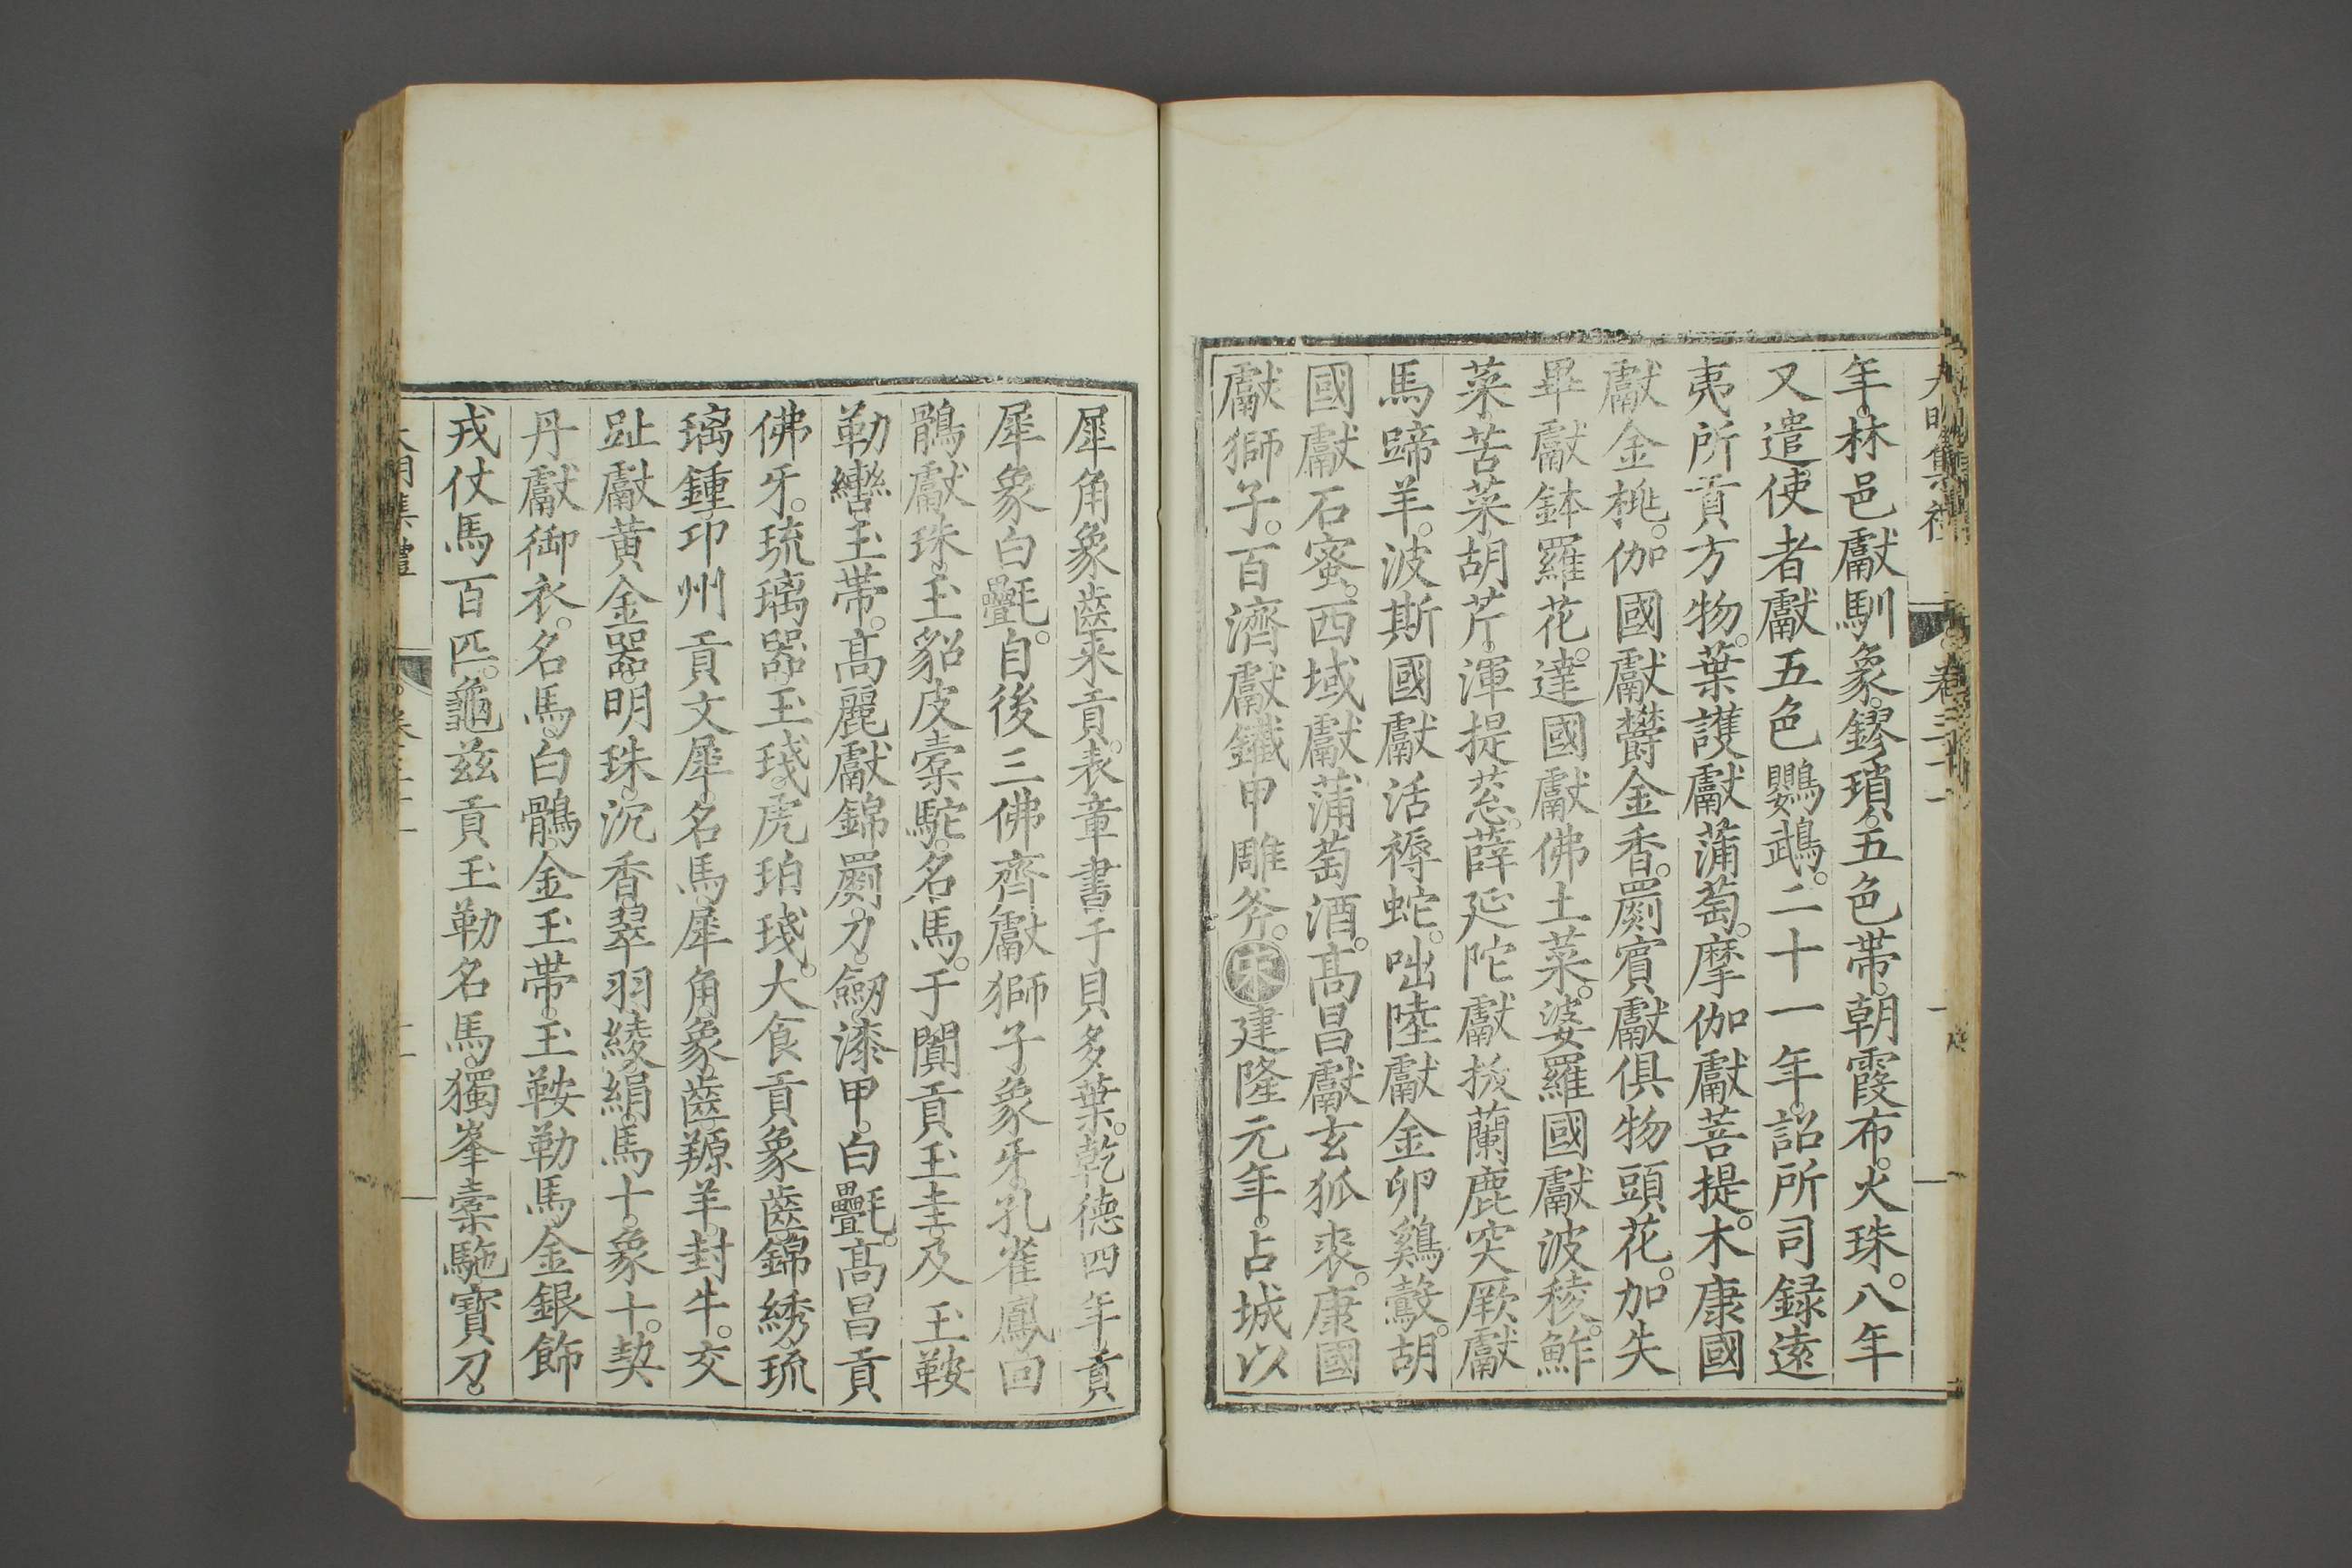 年。林邑獻馴象。鏐瑣。五色帶。朝霞布。火珠。八年
又遣使者獻五色鸚鵡。二十一年。詔所司録遠
夷所貢方物。葉護獻蒲萄。摩伽獻菩提。木康國
獻金桃。伽國獻欝金香。罽賓獻俱物頭花。加失
畢獻鉢羅花。達國獻佛土菜。婆羅國獻波稜。鮓
菜。苦菜。胡芹。渾提葱。薛延陀獻拔蘭鹿突厥獻
馬蹄羊。波斯國獻活褥蛇。咄陸獻金卵鷄鷇。胡
國獻石蜜。西域獻蒲萄酒。高昌獻玄狐裘。康國
獻獅子。百濟獻鐵甲雕斧。宋建隆元年。占城以
犀角象齒來貢。表章書于貝多葉。乾德四年貢
犀象白氎。自後三佛齊獻獅子。象牙。孔雀鳳回
鶻獻珠。玉貂皮橐駝。名馬。于闐貢玉圭。及玉鞍
勒轡。玉帶。高麗獻錦罽。刀。劒。漆甲。白氎。高昌貢
佛牙。琉璃器。玉琖。虎珀琖。大食貢象齒。錦綉。琉
璃鍾。卭州貢文犀。名馬。犀角。象齒。羱羊。封牛。交
趾獻黄金器。明珠。沉香。翠羽。綾絹。馬十。象十。契
丹獻御衣。名馬。白鶻。金玉帶。玉鞍勒馬。金銀飾
戎仗馬百匹。龜兹貢玉勒名馬。獨峯橐駞寶刀。
大明集禮 卷三十一